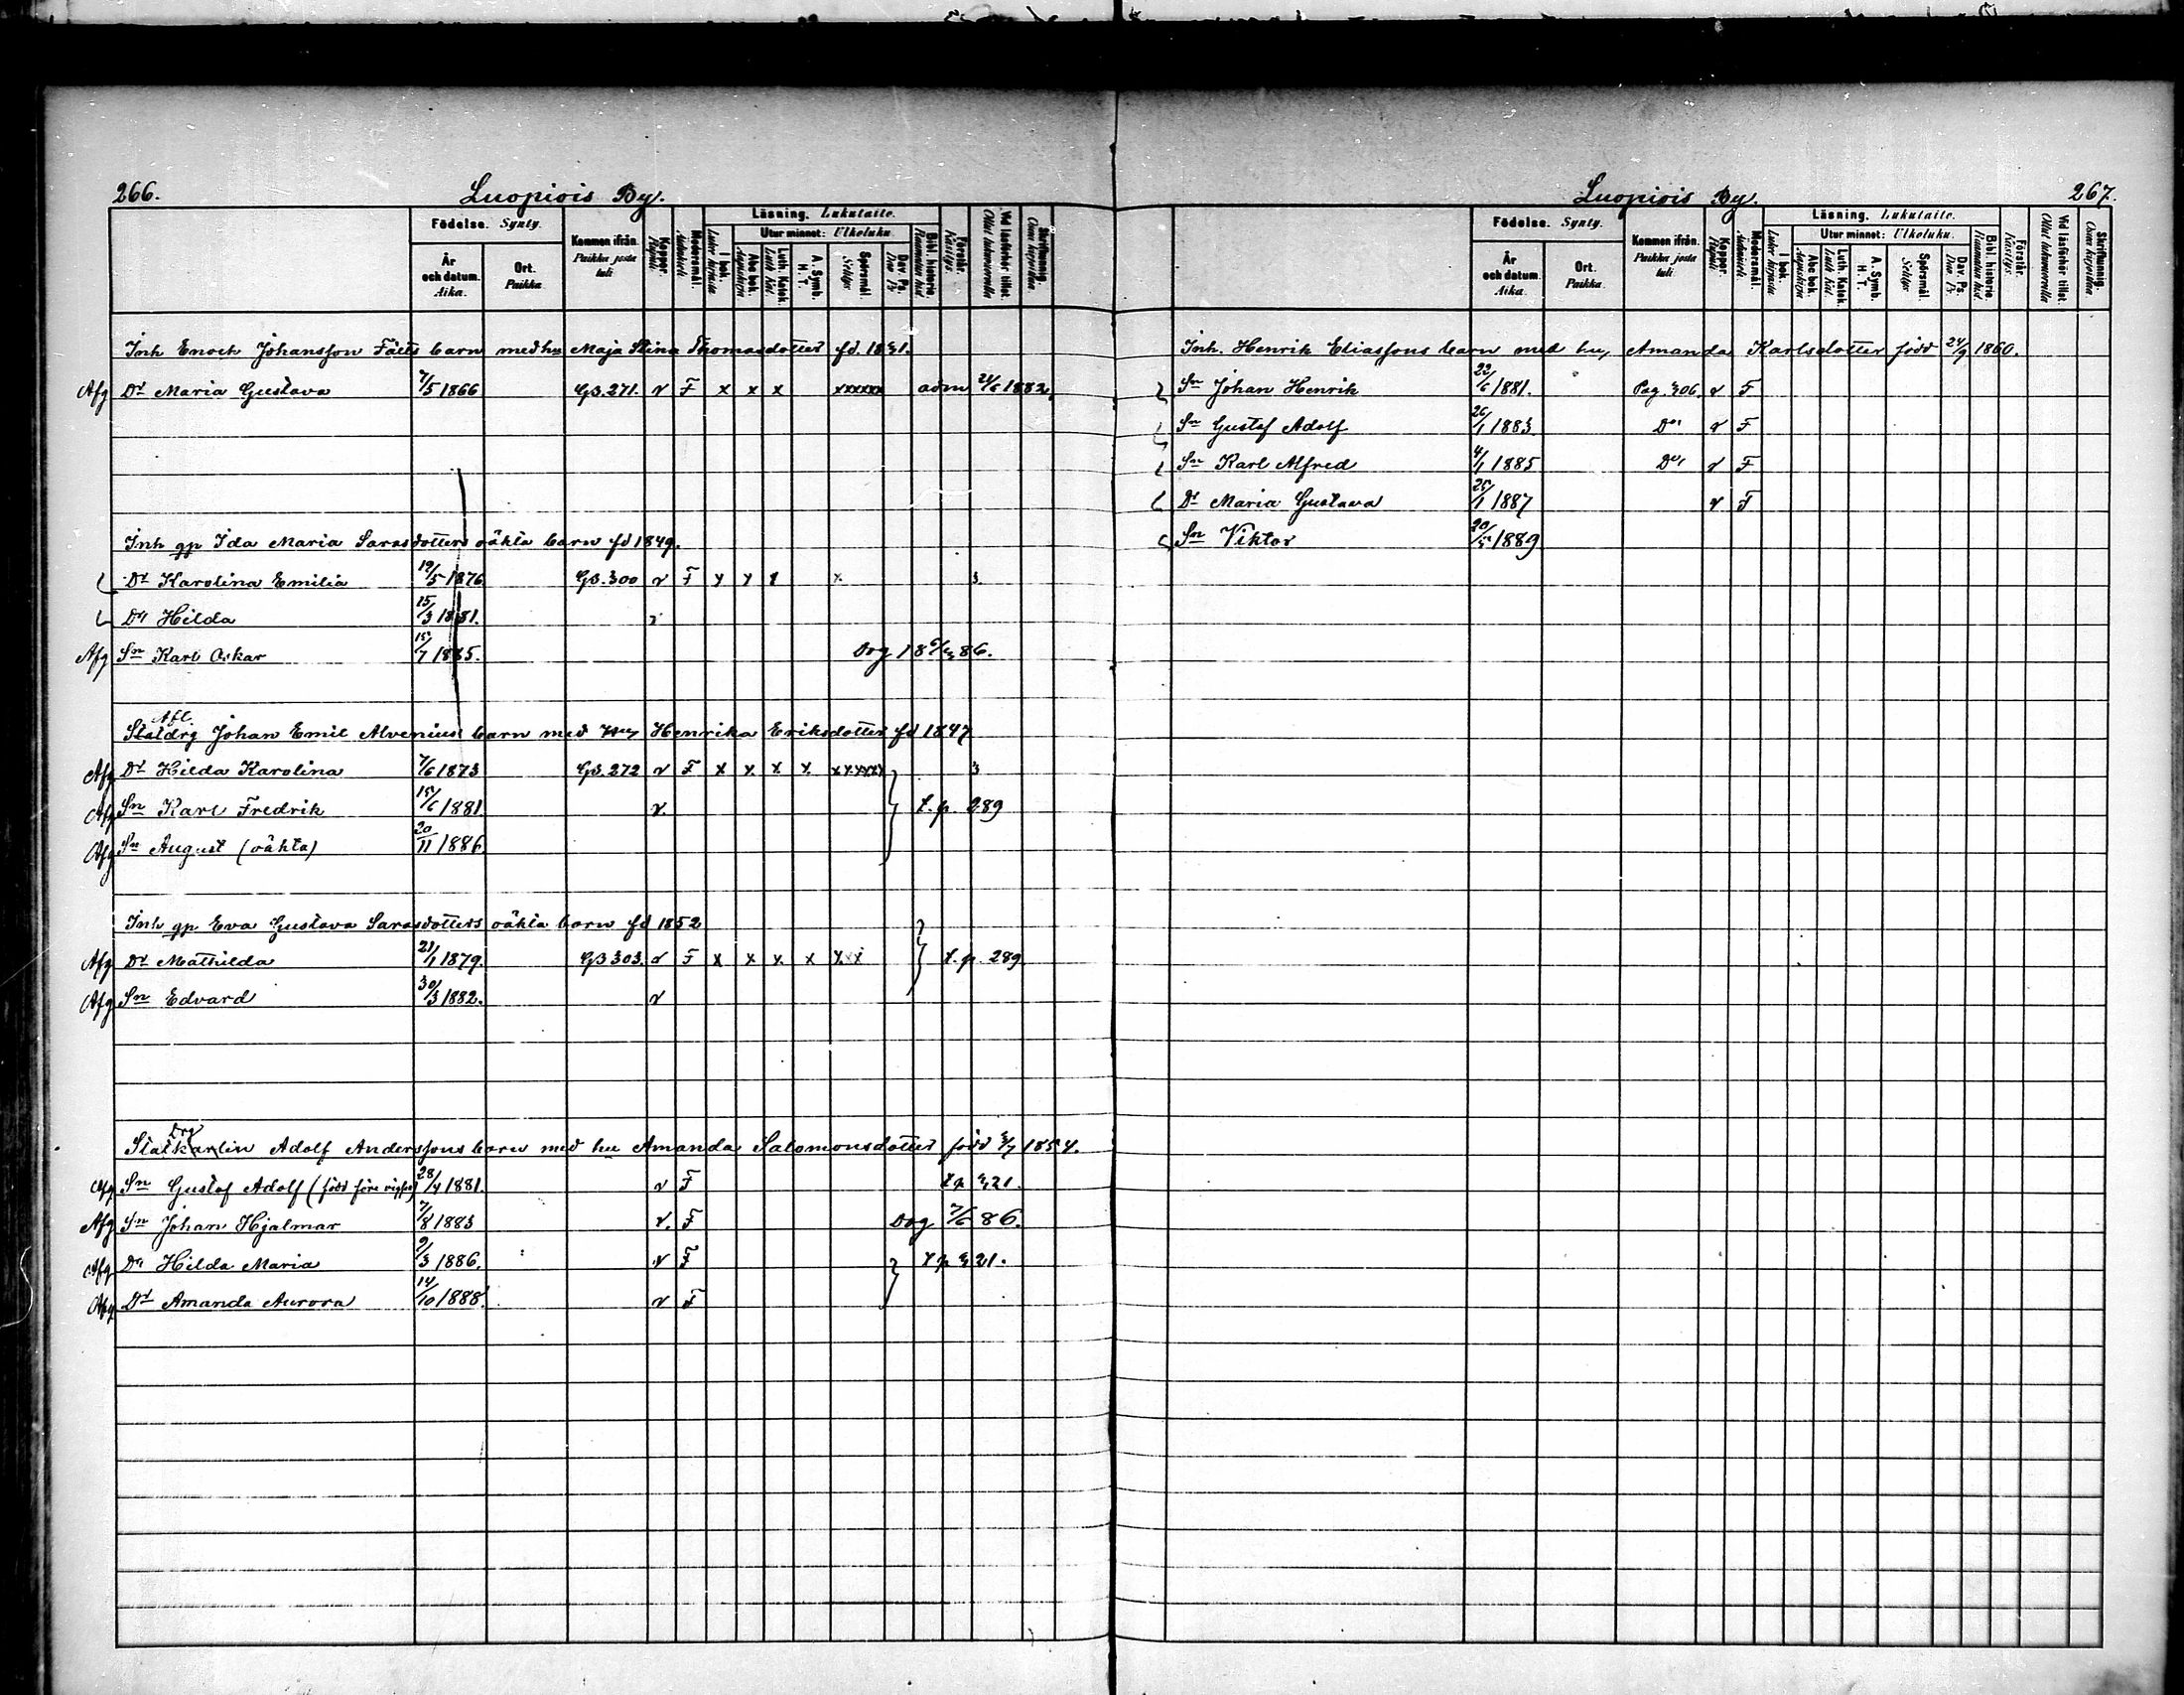 266. Luopiois By.
Födelse. Synty. Kommen ifrån. Paikka josta tuli. Koppor. Rupuli. Modersmål. Äidinkieli. Läsning. Lukutaito. Förstår. Käsitys. Vid läsförhör tillst. Ollut lukuvuorolla Skriftkunnig. Osaa kirjoittaa
År och datum. Aika. Ort. Paikka. I bok. Lukee kirjasta Utur minnet: Ulkoluku. Abc bok. Aapiskirja Luth. Katek. Luth. Kat. A. Symb. H. T. Spörsmål. Selitys Dav. Ps. Dav. Ps. Bibl. historie. Raamatun hist.
Inh Enoch Johansson Fälts barn med hu Maja Stina Thomasdotter fd. 1841.
Afg Dr Maria Gustava 7/5 1866 GB. 271. v F x x x xxxxx adm 24/6 1883.
Inh gp Ida Maria Sarasdotters oäkta barn fd 1849.
Dr Karolina Emilia 19/5 1876 GB. 300 v F x x x x 3.
Dr Hilda 15/3 1881. v
Afg Sn Karl Oskar 15/7 1885. Dog 18 6/4 86.
Afl.
Statdrg Johan Emil Alvenius barn med hu Henrika Eriksdotter fd 1847
Afg Dr Hilda Karolina 7/6 1873 GB. 272 v F x x x x xxxxx 3
Afg Sn Karl Fredrik 15/6 1881. v. t. p. 289
Afg Sn August (oäkta) 20/11 1886.
Inh gp Eva Gustava Sarasdotters oäkta barn fd 1852
Afg Dr Mathilda 21/1 1879. GB 303. v F x x x x x x t. p. 289
Afg Sn Edvard 30/3 1882. v
Drg
Statkarlen Adolf Anderssons barn med hu Amanda Salomonsdotter född 4/7 1854.
Afg Sn Gustaf Adolf (född före vigseln) 28/4 1881. v F t p 421.
Afg Sn Johan Hjalmar 7/8 1883 v. F Dog 7/6 86.
Afg Dr Hilda Maria 9/3 1886. v F t p 421.
Afg Dr Amanda Aurora 14/10 1888. v F
Luopiois By. 267.
Födelse. Synty. Kommen ifrån. Paikka josta tuli. Koppor. Rupuli. Modersmål. Äidinkieli. Läsning. Lukutaito. Förstår. Käsitys. Vid läsförhör tillst. Ollut lukuvuorolla Skriftkunnig. Osaa kirjoittaa
År och datum. Aika. Ort. Paikka. I bok. Lukee kirjasta Utur minnet: Ulkoluku. Abc bok. Aapiskirja Luth. Katek. Luth. Kat. A. Symb. H. T. Spörsmål. Selitys Dav. Ps. Dav. Ps. Bibl. historie. Raamatun hist.
Inh. Henrik Eliassons barn med hu, Amanda Karlsdotter född 24/9 1860.
Sn Johan Henrik 22/6 1881. Pag. 406. v F
Sn Gustaf Adolf 26/1 1883. Do v F
Sn Karl Alfred 4/1 1885 Do v F
Dr Maria Gustava 25/1 1887 v F
Sn Viktor 1889